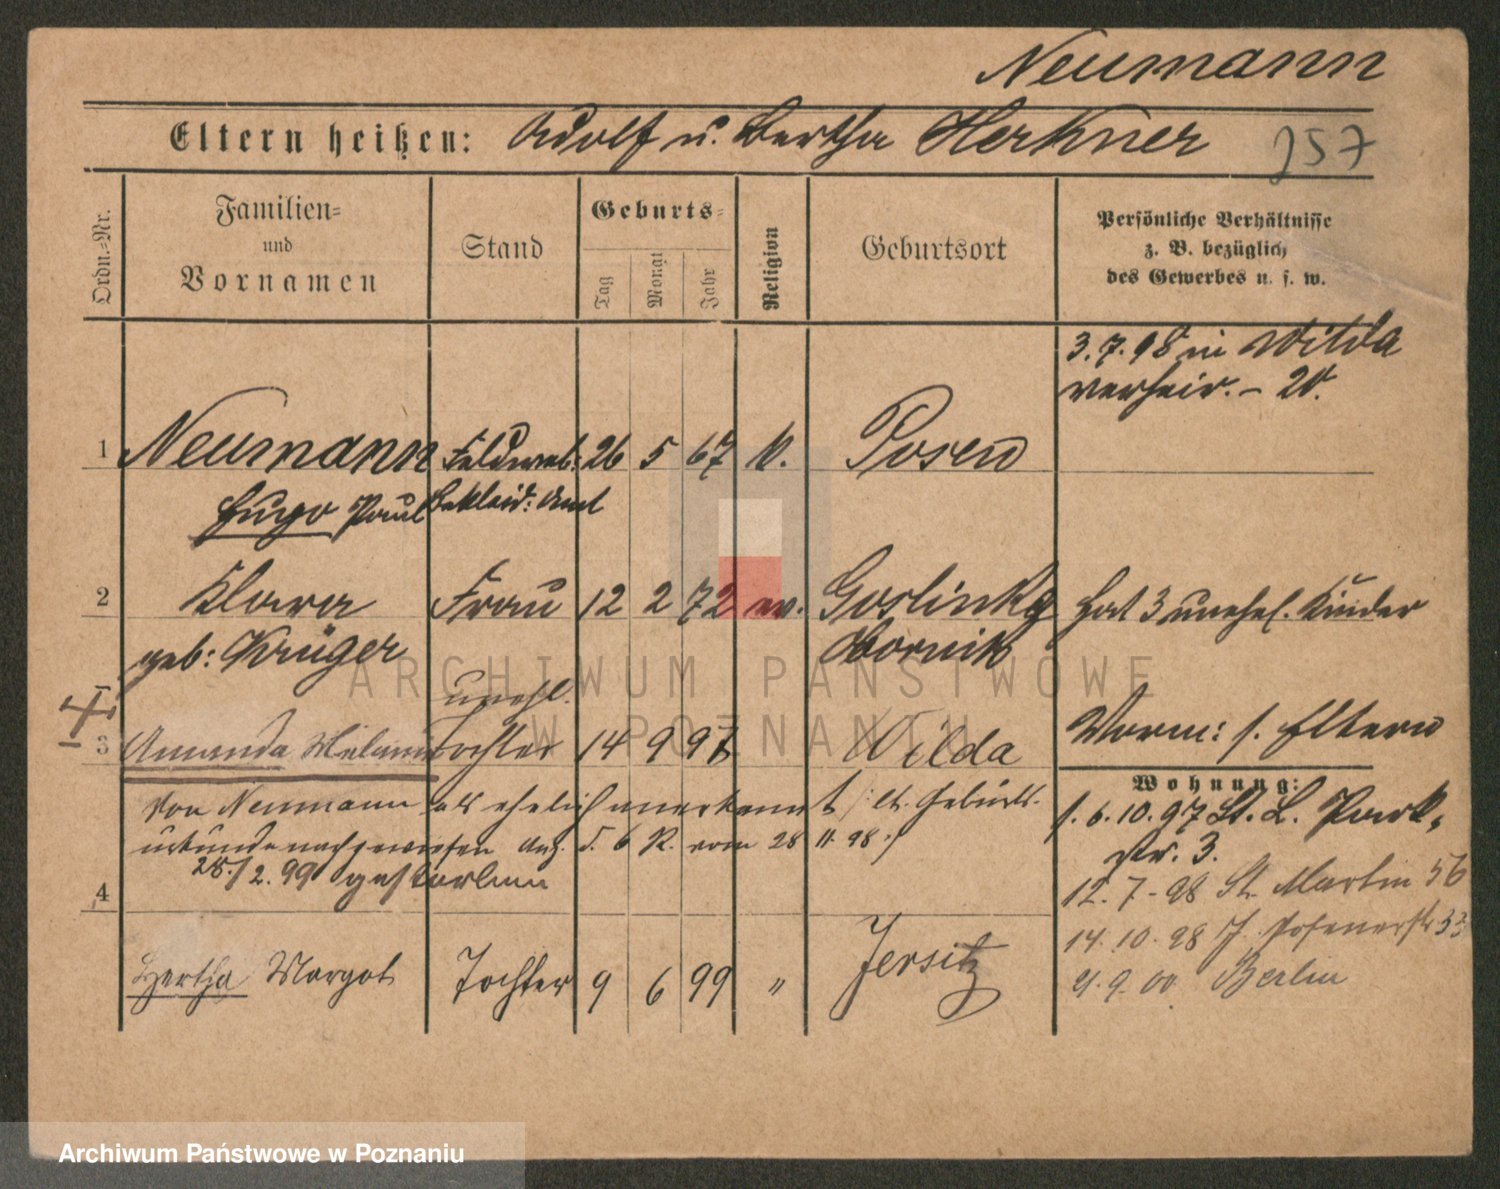 Neumann
Eltern heißen: Adolf u. Bertha Herkner 257
Ordn.=Nr.
Familien=
und
Vornamen
Stand
Geburts=
Tag
Monat
Jahr
Religion
Geburtsort
Persönliche Verhältnisse
z. B. bezüglich
des Gewerbes u. s. w.
3.7.98 in Wilda
verheir. –
1 Neumann Feldweb: 26 5 67 Posen
Hugo Paul Bekleid: Amt
2 Klara Frau 12 2 72 ev. Goslinka hat 3 unehel. Kinder
geb: Krüger Obornik
unehl.
3 Amanda Tochter 14 9 97 Wilda Vorm: s. Eltern
Wohnung:
von Neumann als ehelich anerkannt lt. Geburts-
urkunde nachgewiesen Anz. d. 6 R. vom 28 11. 98.
28./2. 99 gestorben
4
1.6.10.97 St. L. Park-
str. 3.
12.7-98 St. Martin 56
14.10.98 J. Posenerstr 33
21.9.00 Berlin
Hertha Margot Tochter 9 6 99 " Jersitz
ARCHIWUM PAŃSTWOWE
W POZNANIU
Archiwum Państwowe w Poznaniu